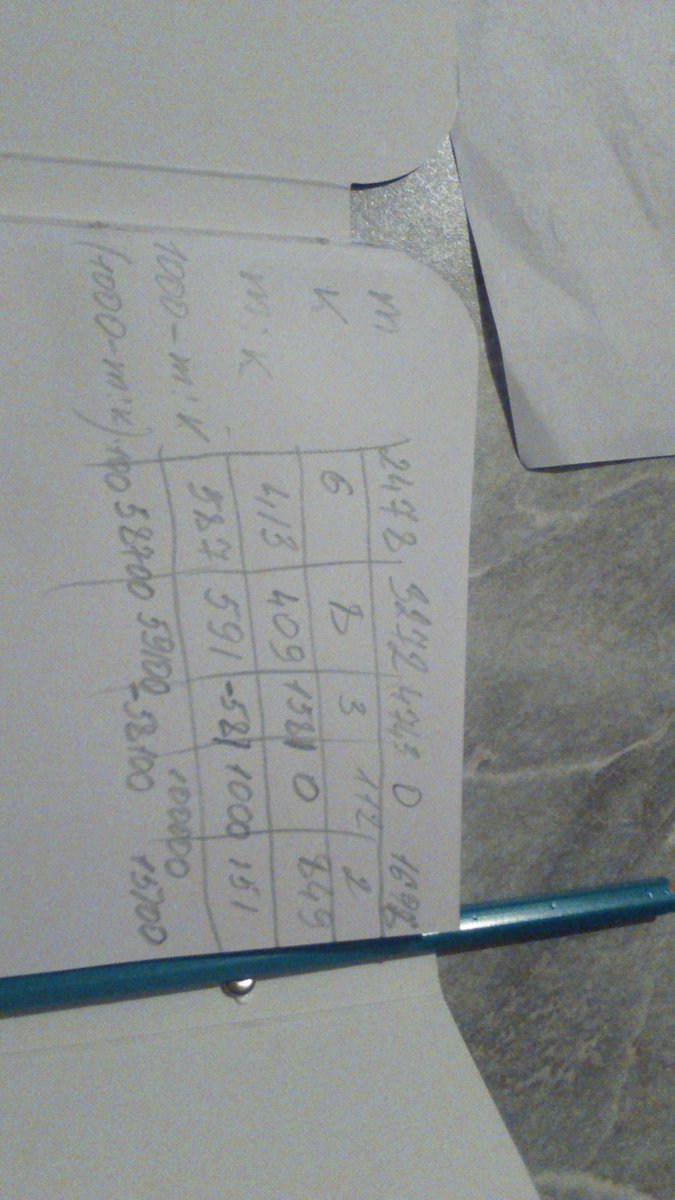 m 2478 3272 4743 0 1698
k 6 8 3 112 2
m:k 413 409 1581 0 849
1000-m:k 587 591 -581 1000 151
(1000-m:k)·100 58700 59100 -58100 100000 15100